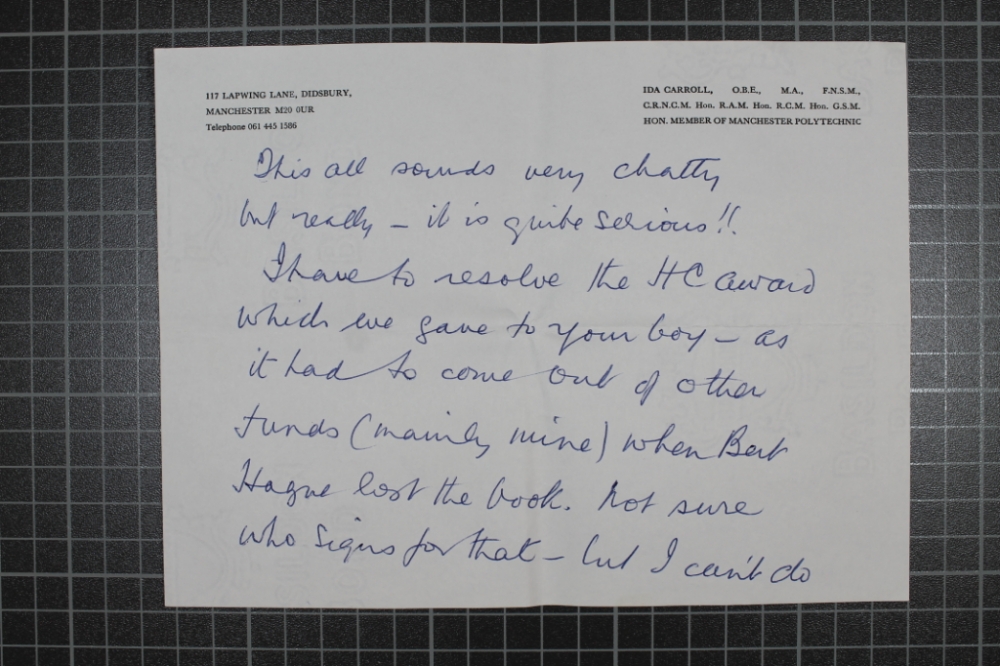 117 LAPWING LANE, DIDSBURY,
MANCHESTER M20 0UR
Telephone 061 445 1586
IDA CARROLL, O.B.E., M.A., F.N.S.M.,
C.R.N.C.M. Hon. R.A.M. Hon. R.C.M. Hon. G.S.M.
HON. MEMBER OF MANCHESTER POLYTECHNIC
This all sounds very chatty
but really – it is quite serious!!
I have to resolve the HC award
which we gave to your boy – as
it had to come out of other
funds (mainly mine) when Bert
Hague lost the book. Not sure
who signs for that – but I can't do